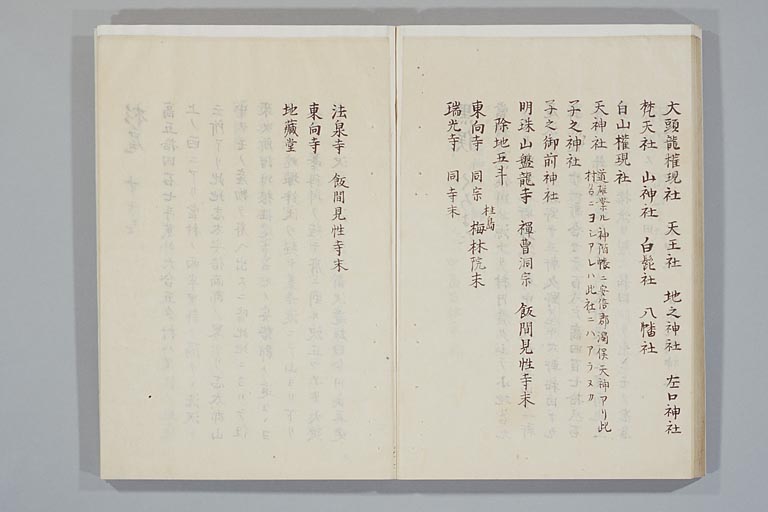 大頭龍權現社　天王社　地之神社　左口神社
梵天社　山神社　白髭社　八幡社
白山權現社
天神社　道雄業ル神階帳ニ安倍郡濁俣天神アリ此
村名ニヨシアレハ此社ニハアラスカ
子之神社
子之御前神社
明珠山盤龍寺　禪曹洞宗　飯間見性寺末
除地五斗
東向寺　同宗　柱島　梅林院末
瑞光寺　同寺末
法泉寺　飯間見性寺末
東向寺
地藏堂